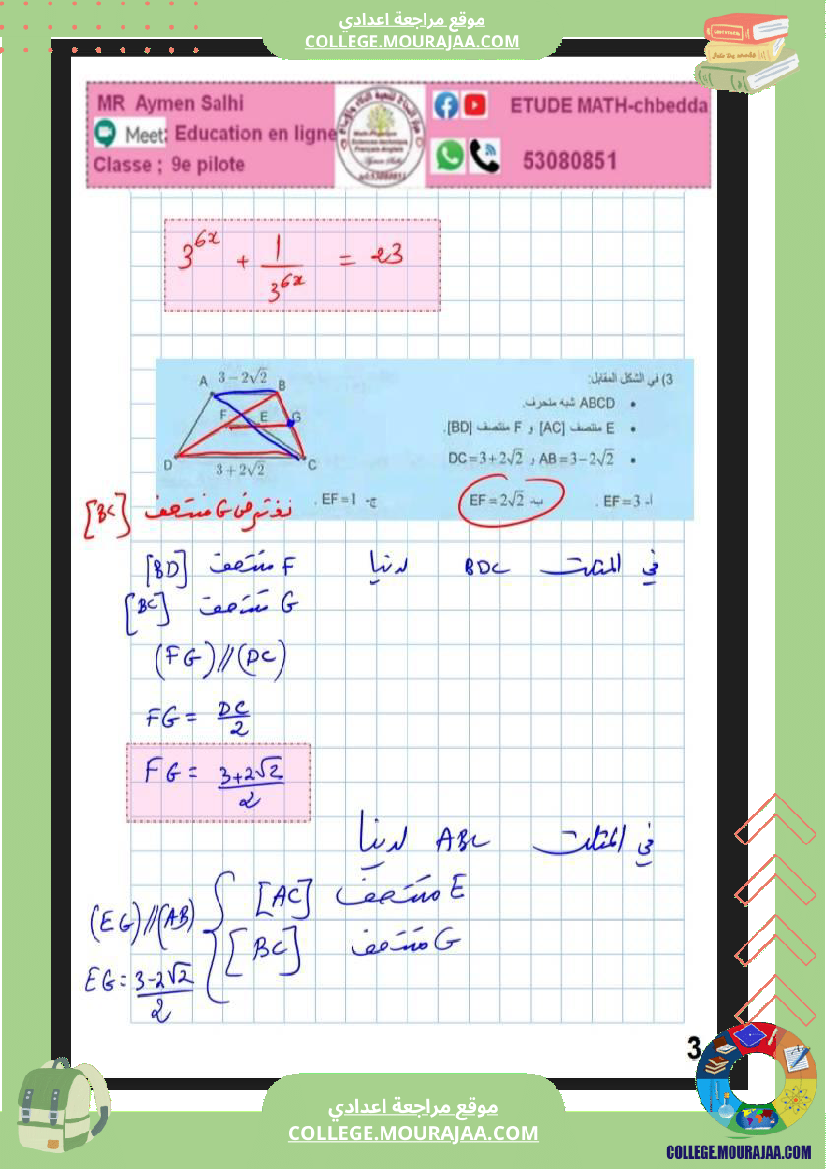 موقع مراجعة اعدادي
COLLEGE.MOURAJAA.COM
MR Aymen Salhi
Meet: Education en ligne
Classe ; 9e pilote
ETUDE MATH-chbedda
53080851
3^{6x} + 1/3^{6x} = 23
3) في الشكل المقابل:
• ABCD شبه منحرف.
• E منتصف [AC] و F منتصف [BD].
• AB=3−2√2 و DC=3+2√2
أ- EF=3 . ب- EF=2√2 ج- EF=1 .
A 3−2√2 B
F E G
D 3+2√2 C
نفترض G منتصف [BC]
في المثلث BDC لدينا F منتصف [BD]
G منتصف [BC]
(FG)//(DC)
FG = DC/2
FG = 3+2√2/2
في المثلث ABC لدينا
E منتصف [AC]
G منتصف [BC]
(EG)//(AB)
EG = 3-2√2/2
3
موقع مراجعة اعدادي
COLLEGE.MOURAJAA.COM
COLLEGE.MOURAJAA.COM